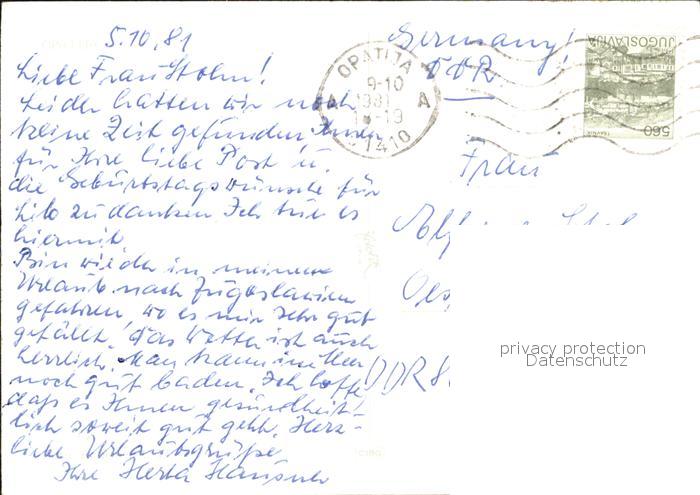 5.10.81
Liebe Frau Stohn!
Leider hatten wir noch
keine Zeit gefunden Ihnen
für Ihre liebe Post u.
die Geburtstagswünsche für
zu danken Ich tue es
hiermit
Bin wieder in meinem
Urlaub nach Jugoslawien
gefahren, wo es mir sehr gut
gefällt. Das Wetter ist auch
herrlich. Man kann im Meer
noch gut baden. Ich hoffe
daß es Ihnen gesundheit-
lich soweit gut geht. Herz-
liche Urlaubsgrüße
Ihre Herta
Germany!
DDR
OPATIJA
9-10
1981
A
JUGOSLAVIJA
5.60
Frau
DDR 8
privacy protection
Datenschutz